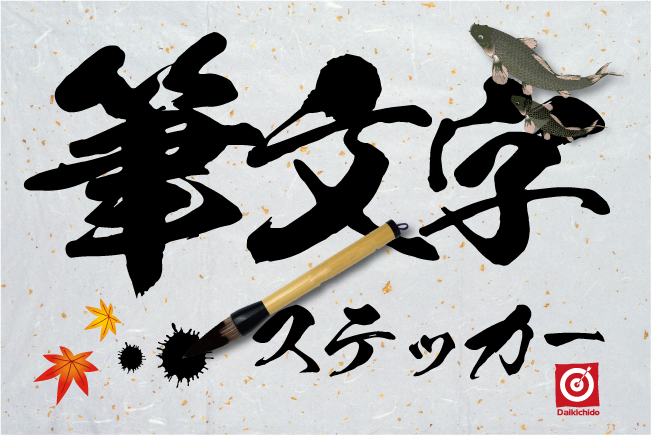 筆文字
ステッカー
Daikichido